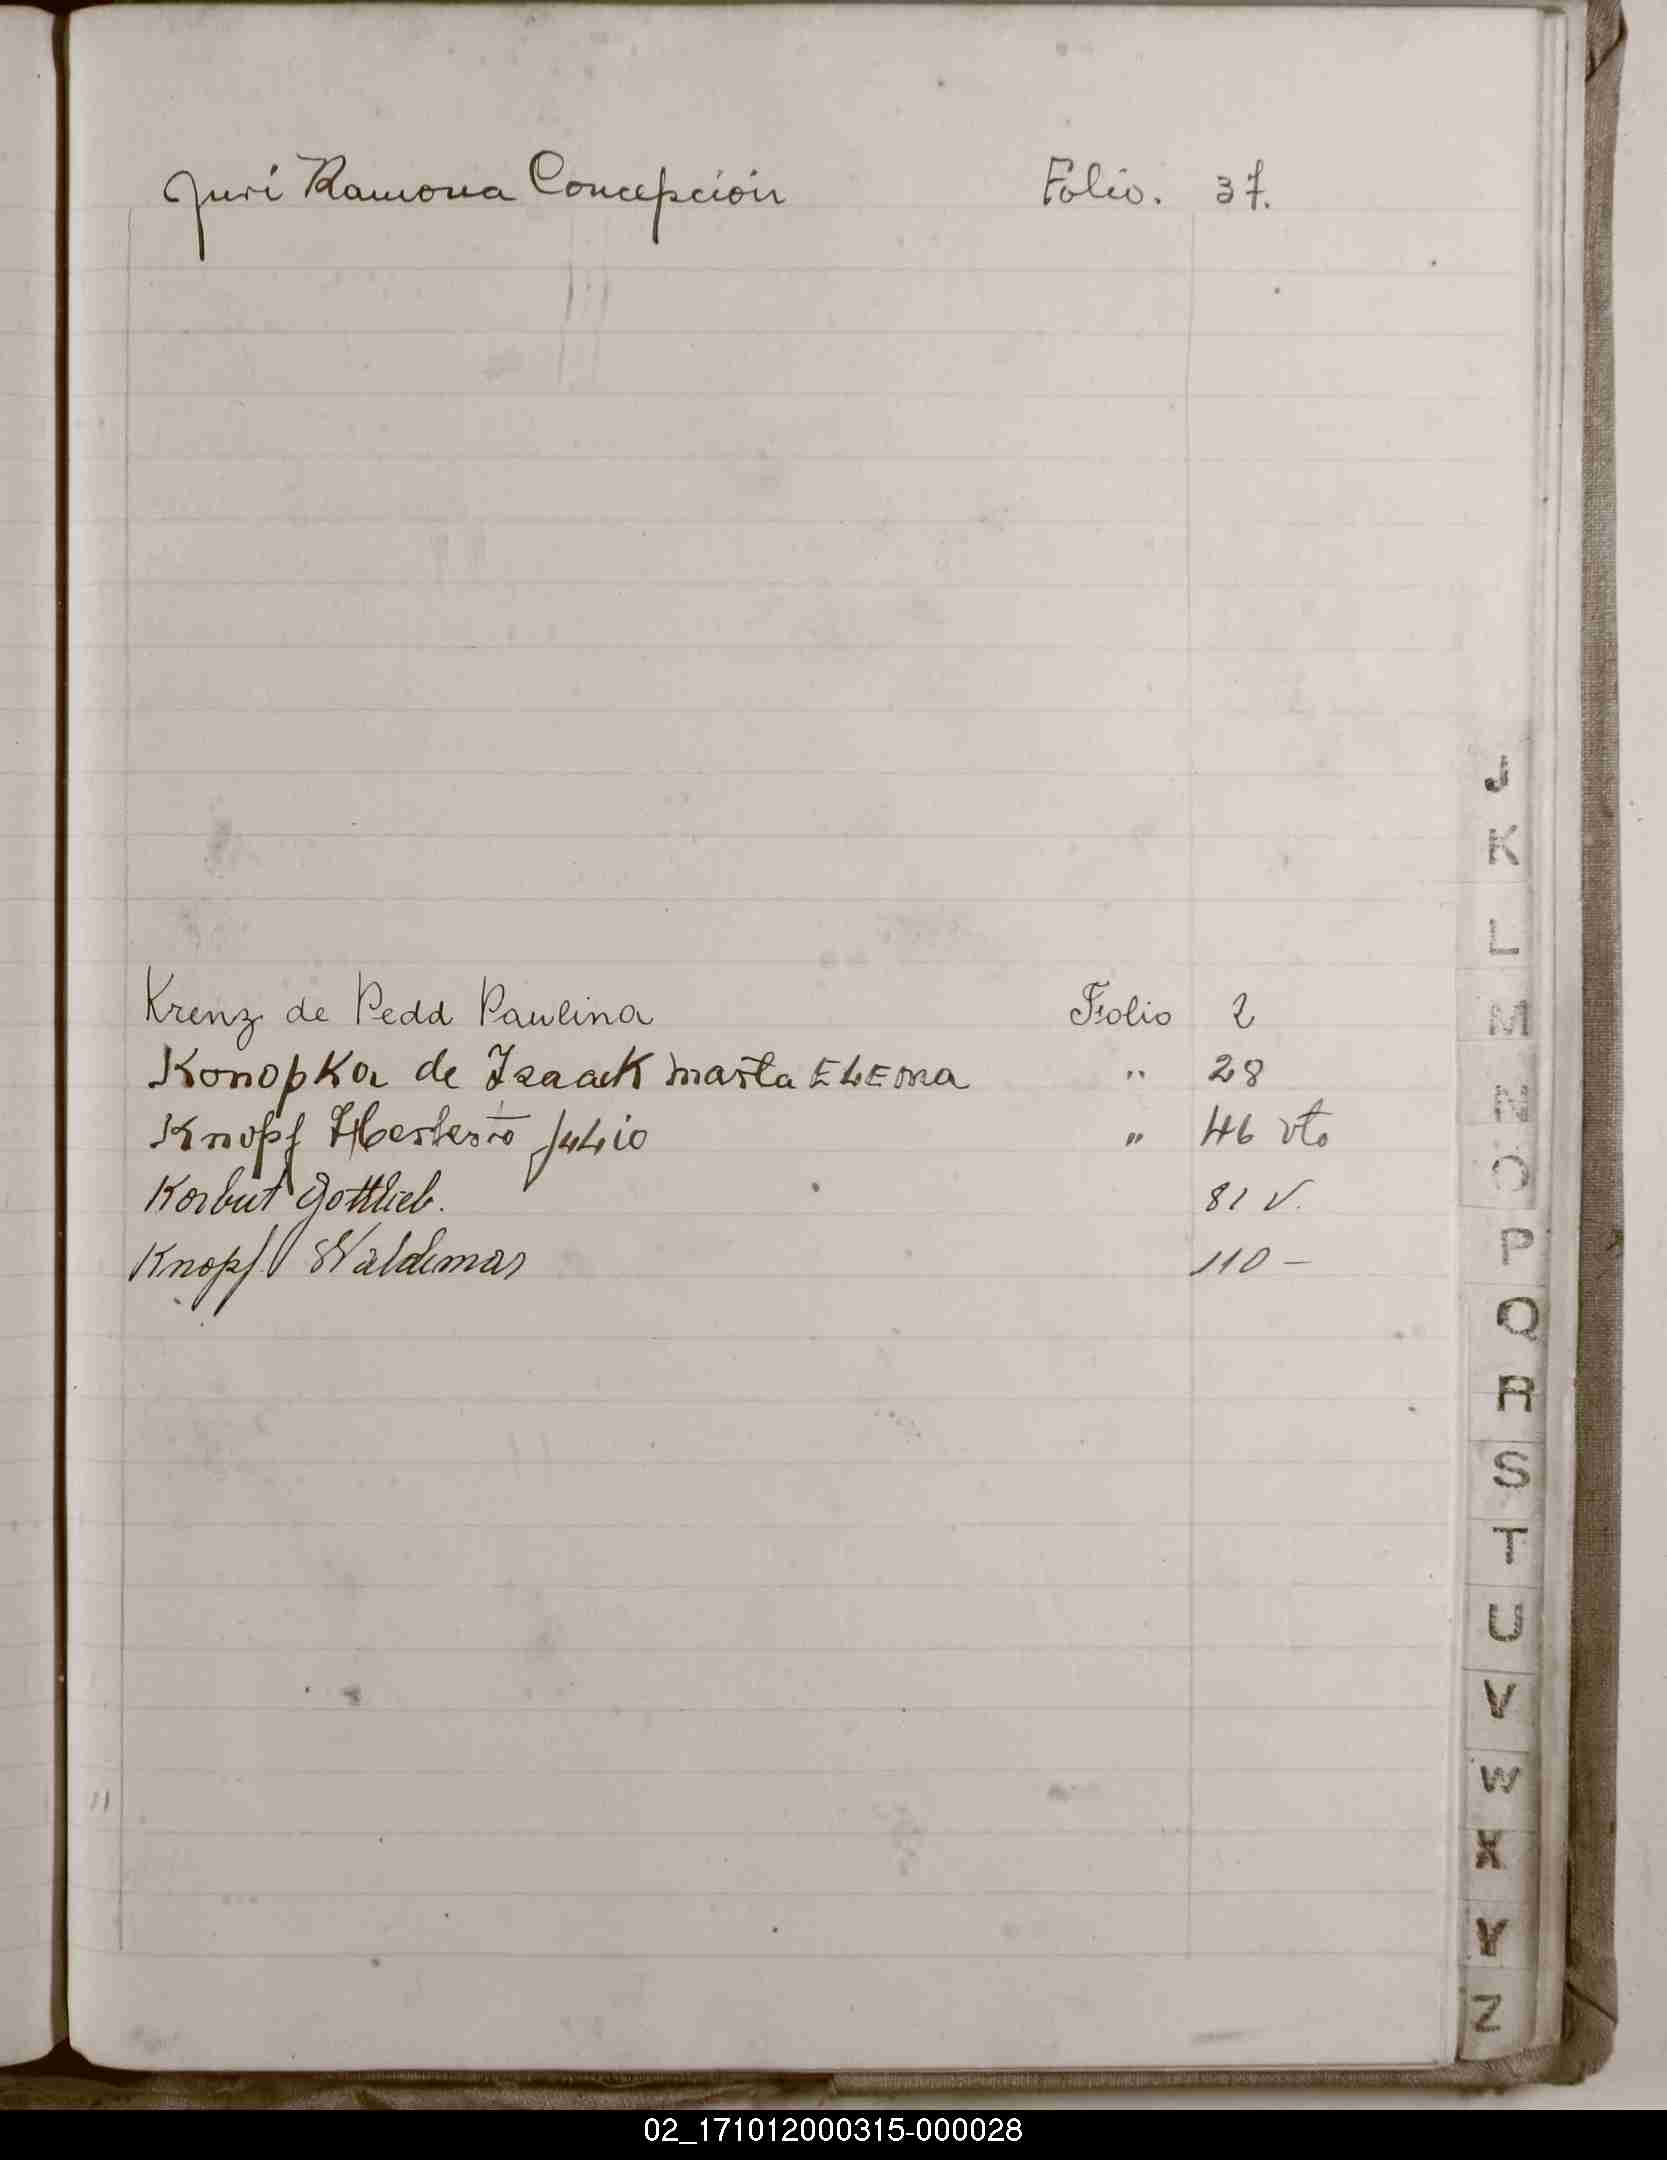 Juri Ramona Concepción Folio. 37.
Krenz de Pedd Paulina Folio 2
Konopka de Isaack Marta ELEna " 28
Knopf Herberto Julio " 46 vto
Korbut Gottlieb. 81 v.
Knopf Waldemar 110 –
J
K
L
M
N
O
P
Q
R
S
T
U
V
W
X
Y
Z
02_171012000315-000028